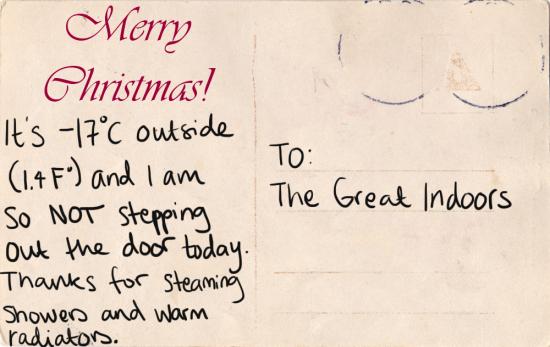 Merry
Christmas!
It's -17°C outside
(1.4F°) and I am
So NOT stepping
Out the door today.
Thanks for steaming
Showers and warm
radiators.
To:
The Great Indoors